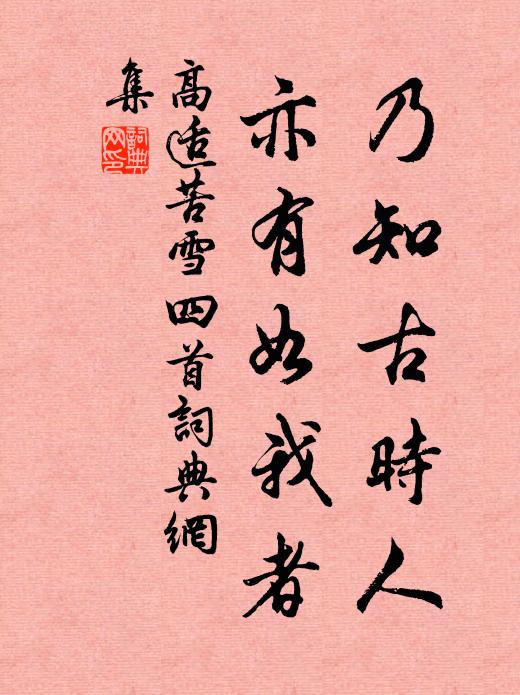 乃知古時人
亦有如我者
高适苦雪四首詞典網
集
詞典網印